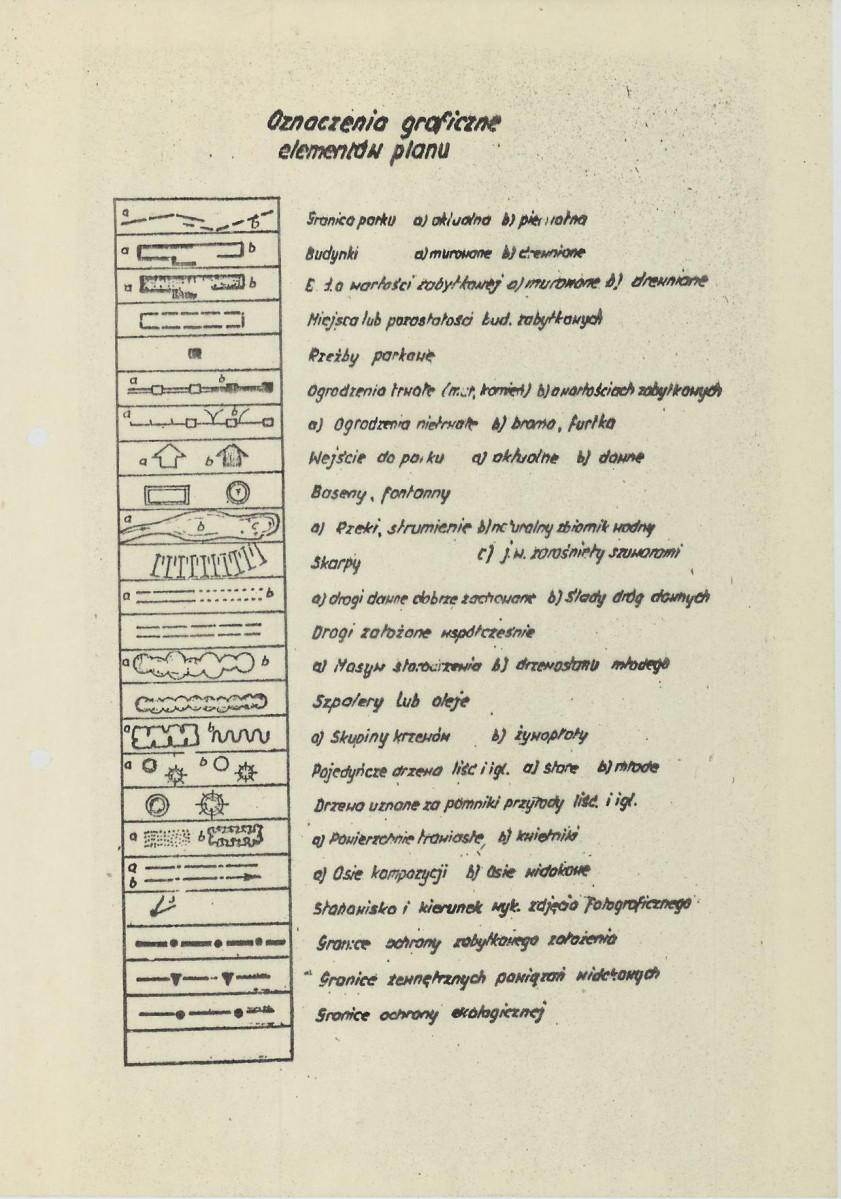 Oznaczenia graficzne
elementów planu
a b Granica parku a) aktualna b) pierwotna
a b Budynki a) murowane b) drewniane
a b wartości zabytkowej a) murowane b) drewniane
Miejsca lub pozostałości bud. zabytkowych
Rzeźby parkowe
a b Ogrodzenia trwałe (mur, kamień) b) o wartościach zabytkowych
a b a) Ogrodzenia nietrwałe b) brama, furtka
a b Wejście do parku a) aktualne b) dawne
Baseny, fontanny
a b c a) Rzeki, strumienie b) naturalny zbiornik wodny
c) j.w. zarośnięty szuwarami
Skarpy
a b a) drogi dawne dobrze zachowane b) Ślady dróg dawnych
Drogi założone współcześnie
a b a) Masyw starodrzewia b) drzewostanu młodego
Szpalery lub aleje
a b a) Skupiny krzewów b) żywopłoty
a b Pojedyńcze drzewa liść i igl. a) stare b) młode
Drzewa uznane za pomniki przyrody liść. i igl.
a b a) Powierzchnie trawiaste, b) kwietniki
a b a) Osie kompozycji b) Osie widokowe
Stanowisko i kierunek wyk. zdjęcia fotograficznego
Granice ochrony zabytkowego założenia
Granice zewnętrznych powiązań widokowych
Granice ochrony ekologicznej